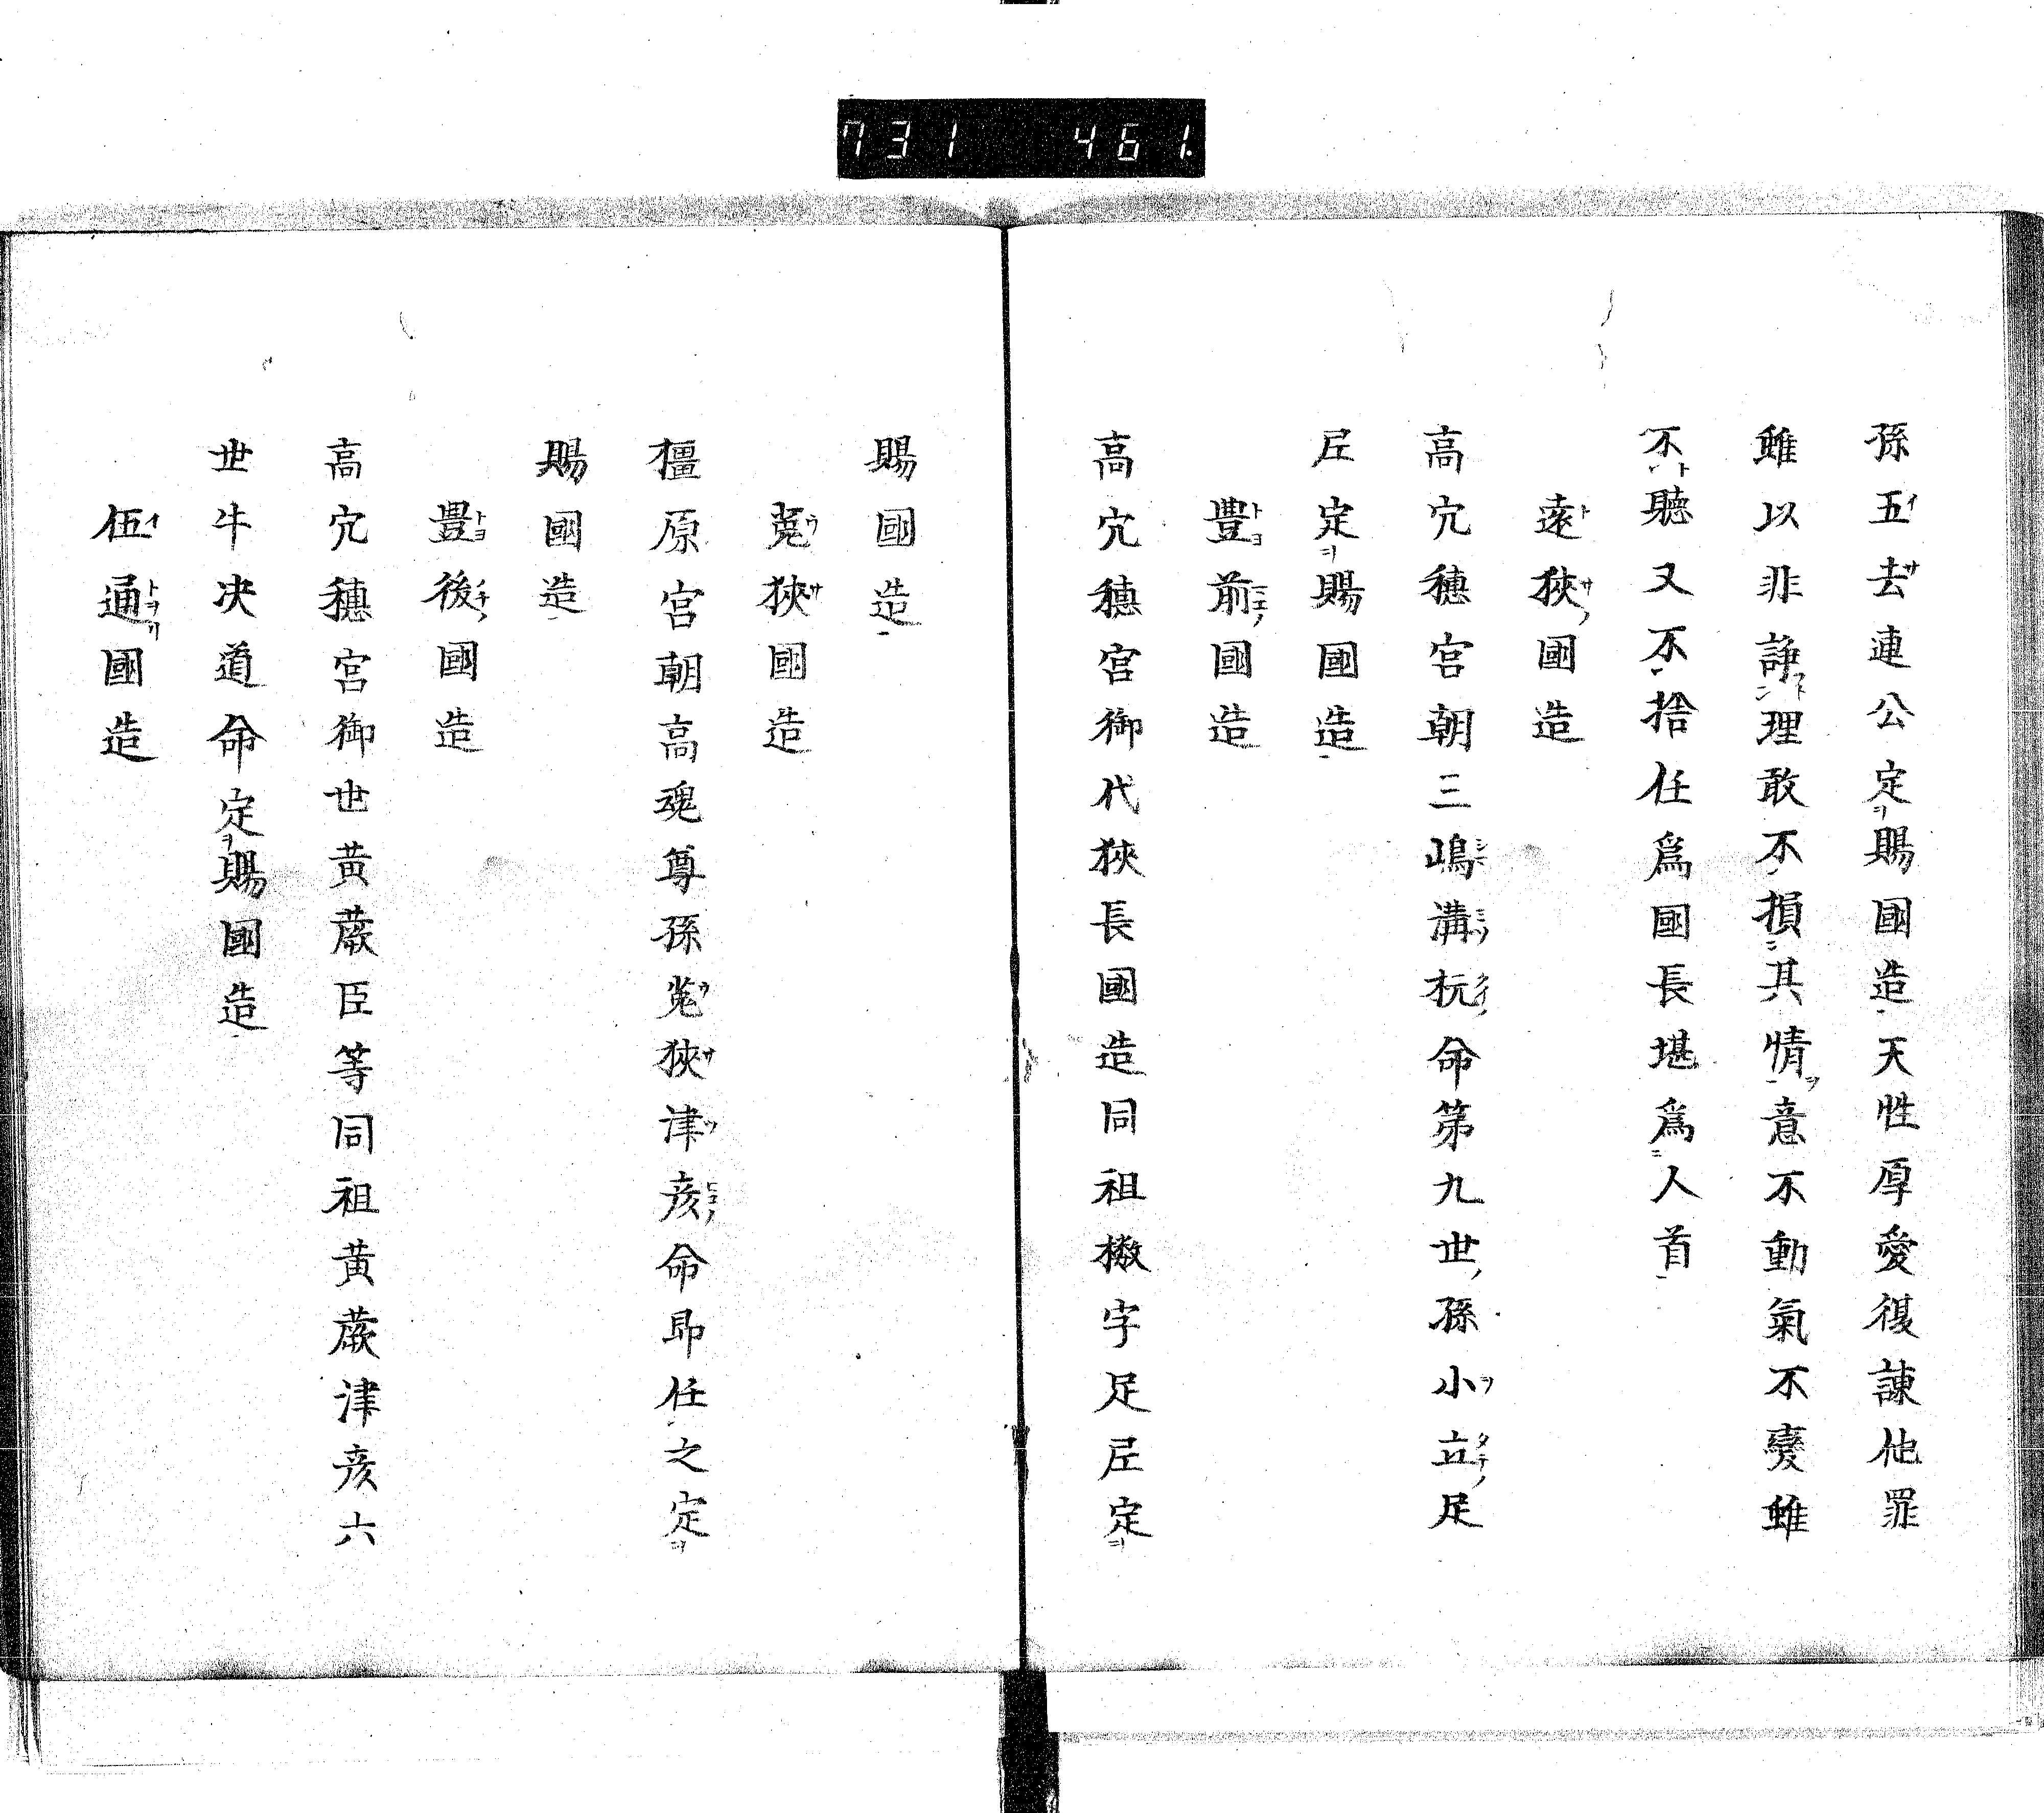 731 461
孫五去連公定賜國造天性厚愛復諌他罪
雖以非諍理敢不損其情意不動氣不變雖
不聽又不捨任爲國長堪爲人首
遠狹國造
高穴穗宮朝三嶋溝杭命第九世孫小立足
尼定賜國造
豊前國造
高穴穗宮御代狹長國造同祖橵字足尼定
賜國造
菟狹國造
橿原宮朝高魂尊孫菟狹津彦命即任之定
賜國造
豊後國造
高穴穗宮御世黄蕨臣等同祖黄蕨津彦六
世牛决道命定賜國造
伍通國造